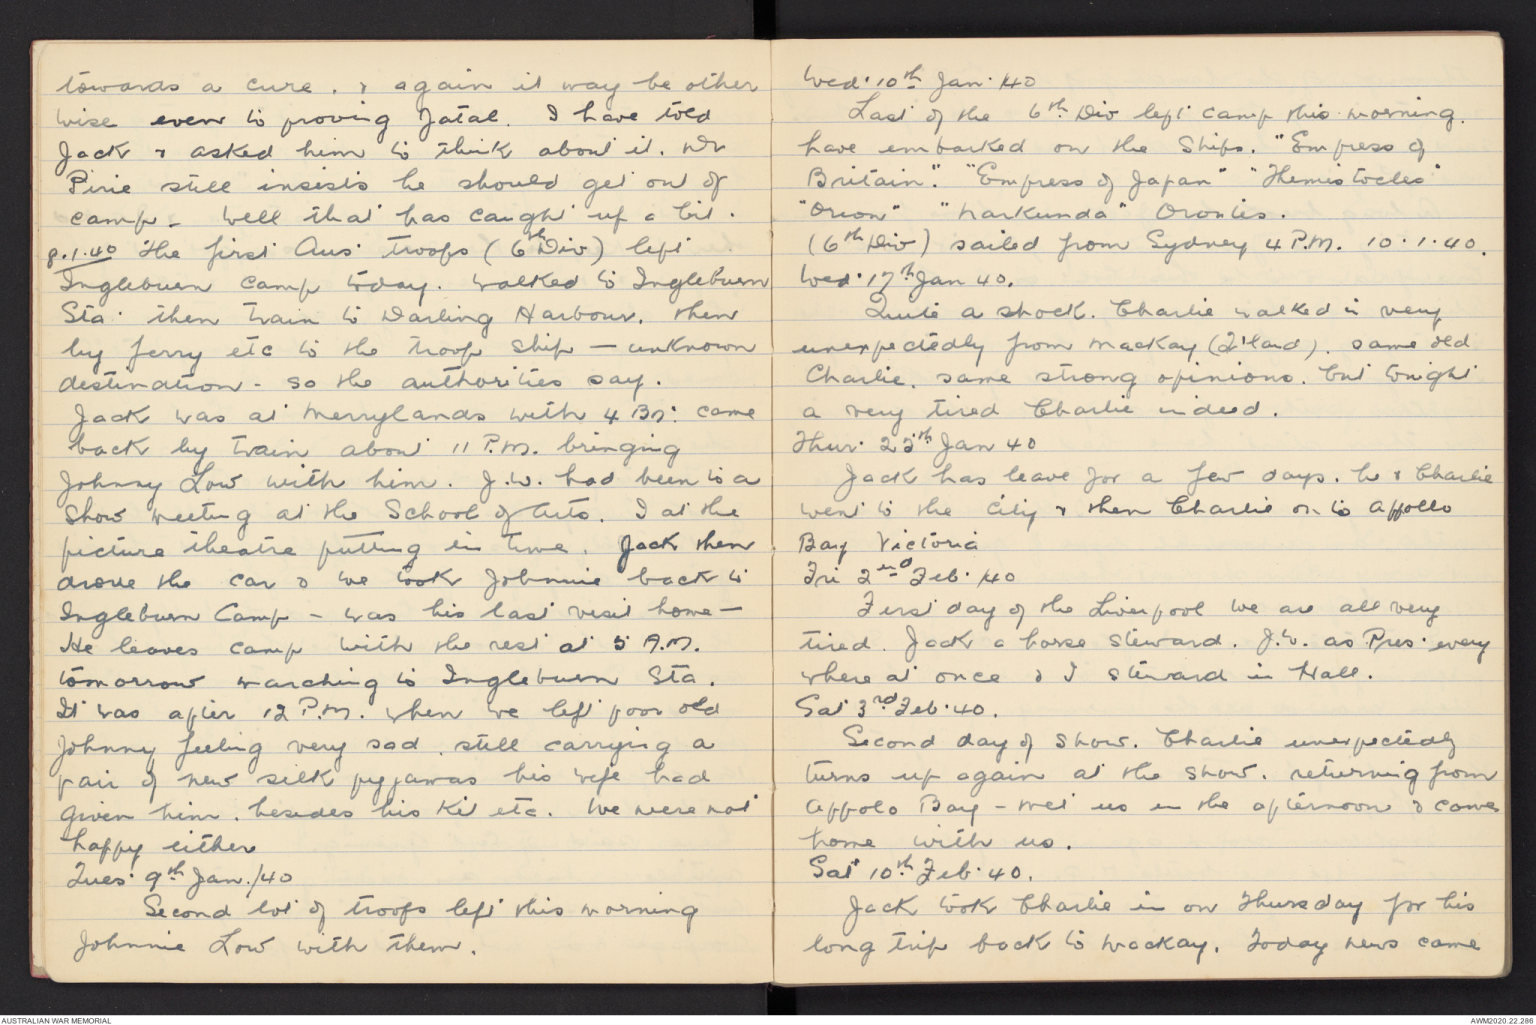 towards a cure. & again it may be other
wise even to proving fatal. I have told
Jack & asked him to think about it. Dr
Pirie still insists he should get out of
camp. Well that has caught up a bit.
8.1.40 The first Aus troops (6th Div) left
Ingleburn Camp today. walked to Ingleburn
Sta. then train to Darling Harbour. then
by ferry etc to the troop ship – unknown
destination - so the authorities say.
Jack was at Merrylands with 4 Bn: came
back by train about 11 P.M. bringing
Johnny Low with him. J.W. had been to a
Show meeting at the School of Arts. I at the
picture theatre putting in time. Jack then
drove the car & we took Johnnie back to
Ingleburn Camp – was his last visit home –
He leaves camp with the rest at 5 A.M.
tomorrow marching to Ingleburn Sta.
It was after 12 P.M. when we left poor old
Johnny feeling very sad. still carrying a
pair of new silk pyjamas his wife had
given him. besides his kit etc. We were not
happy either
Tues. 9th Jan./40
Second lot of troops left this morning
Johnnie Low with them.
Wed. 10th Jan. /40
Last of the 6th Div left camp this morning.
have embarked on the Ships. "Empress of
Britain". "Empress of Japan" "Themistocles"
"Orion" "Narkunda" Orontes.
(6th Div) sailed from Sydney 4 P.M. 10.1.40.
Wed. 17th Jan 40.
Quite a shock. Charlie walked in very
unexpectedly from Mackay (Q'land). same old
Charlie. same strong opinions. but tonight
a very tired Charlie indeed.
Thur. 25th Jan 40
Jack has leave for a few days. he & Charlie
went to the City & then Charlie on to Appollo
Bay Victoria
Fri 2nd Feb. /40
First day of the Liverpool we are all very
tired. Jack a horse Steward. J.W. as Pres. every
where at once & I steward in Hall.
Sat 3rd Feb. 40.
Second day of Show. Charlie unexpectedly
turns up again at the show. returning from
Appolo Bay – met us in the afternoon & comes
home with us.
Sat 10th Feb. 40.
Jack took Charlie in on Thursday for his
long trip back to Mackay. Today news came
AUSTRALIAN WAR MEMORIAL
AWM2020.22.286